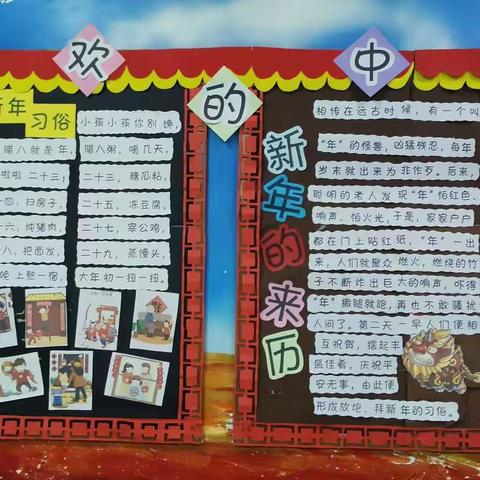 欢 的 中
新年
习俗
小孩小孩你别馋,
腊八就是年,
腊八粥,喝几天,
啦啦 二十三;
二十三,糖瓜粘,
四,扫房子,
二十五,冻豆腐,
六,炖猪肉,
二十七,宰公鸡,
八,把面发,
二十九,蒸馒头,
晚上熬一宿,
大年初一扭一扭。
新年的来历
相传在远古时候,有一个叫
“年”的怪兽,凶猛残忍,每年
岁末就出来为非作歹。后来,
聪明的老人发现“年”怕红色、
响声、怕火光,于是,家家户户
都在门上贴红纸,“年”一出
来,人们就聚众燃火,燃烧的竹
子不断炸出巨大的响声,吓得
“年”撒腿就跑,再也不敢骚扰
人间了。第二天一早人们便相
互祝贺,摆起丰
盛佳肴,庆祝平
安无事,由此便
形成放炮、拜新年的习俗。